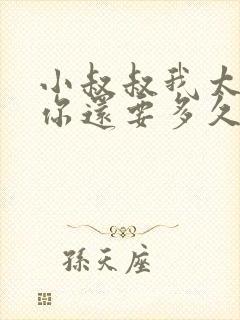 小叔叔我大
你還要多久
孫天座